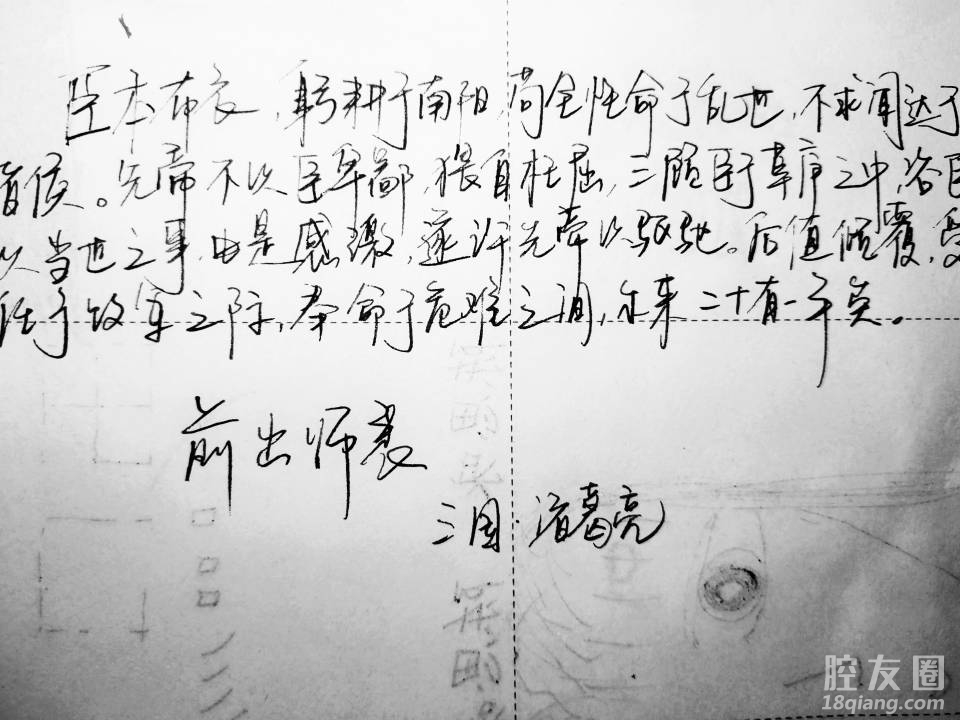 臣本布衣，躬耕于南阳，苟全性命于乱世，不求闻达于
诸侯。先帝不以臣卑鄙，猥自枉屈，三顾臣于草庐之中，咨臣
以当世之事，由是感激，遂许先帝以驱驰。后值倾覆，受
任于败军之际，奉命于危难之间，尔来二十有一年矣。
前出师表
三国·诸葛亮
腔友圈
18qiang.com